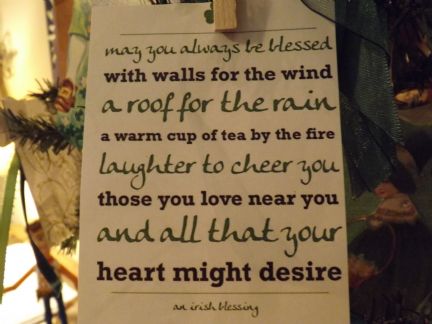 may you always be blessed
with walls for the wind
a roof for the rain
a warm cup of tea by the fire
laughter to cheer you
those you love near you
and all that your
heart might desire
an irish blessing